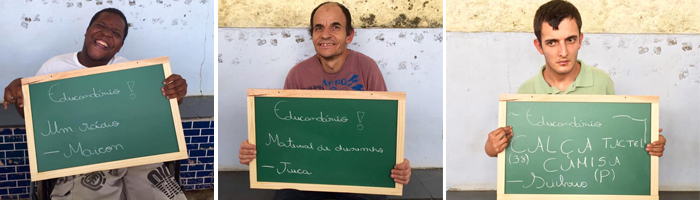 Educandário!
Um rádio
- Maicon
Educandário!
Material de desenho
- Juca
- Educandário -
CALÇA TACTEL
(38) CAMISA
(P)